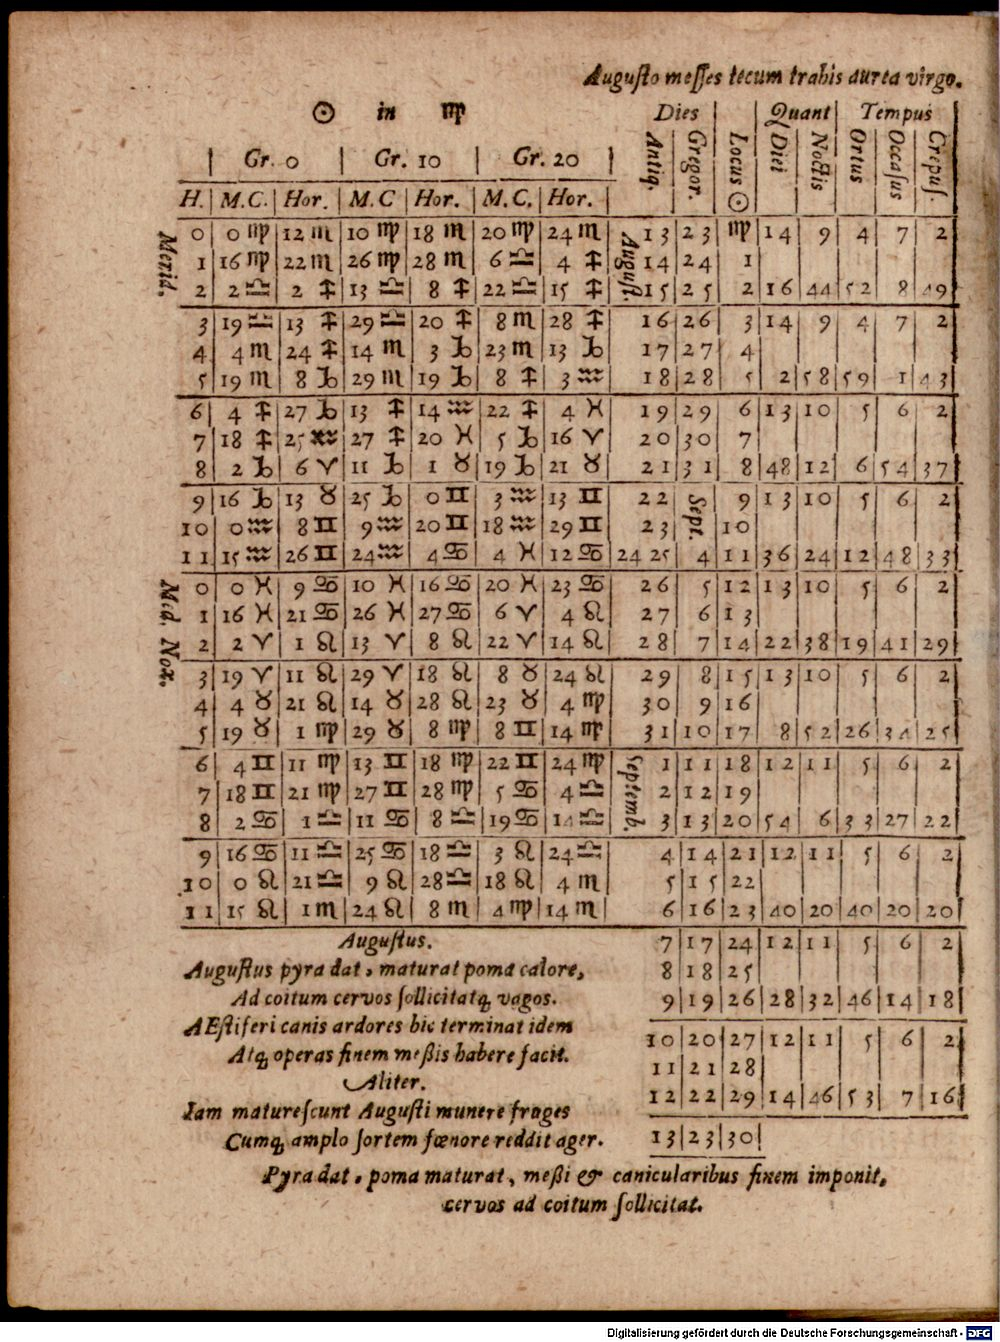 Augusto messes tecum trahis aurea virgo.
☉ in ♍ Dies Quant Tempus
Gr. 0 Gr. 10 Gr. 20 Antiq. Gregor. Locus ☉ Diei Noctis Ortus Occasus Crepus.
H. M.C. Hor. M.C Hor. M.C. Hor.
Merid. August.
0 0 ♍ 12 ♏ 10 ♍ 18 ♏ 20 ♍ 24 ♏ 13 23 ♍ 14 9 4 7 2
1 16 ♍ 22 ♏ 26 ♍ 28 ♏ 6 ♎ 4 ♐ 14 24 1
2 2 ♎ 2 ♐ 13 ♎ 8 ♐ 22 ♎ 15 ♐ 15 25 2 16 44 52 8 49
3 19 ♎ 13 ♐ 29 ♎ 20 ♐ 8 ♏ 28 ♐ 16 26 3 14 9 4 7 2
4 4 ♏ 24 ♐ 14 ♏ 3 ♑ 23 ♏ 13 ♑ 17 27 4
5 19 ♏ 8 ♑ 29 ♏ 19 ♑ 8 ♐ 3 ♒ 18 28 5 2 58 59 1 43
6 4 ♐ 27 ♑ 13 ♐ 14 ♒ 22 ♐ 4 ♓ 19 29 6 13 10 5 6 2
7 18 ♐ 25 ♒ 27 ♐ 20 ♓ 5 ♑ 16 ♈ 20 30 7
8 2 ♑ 6 ♈ 11 ♑ 1 ♉ 19 ♑ 21 ♉ 21 31 8 48 12 6 54 37
9 16 ♑ 13 ♉ 25 ♑ 0 ♊ 3 ♒ 13 ♊ 22 Sept. 9 13 10 5 6 2
10 0 ♒ 8 ♊ 9 ♒ 20 ♊ 18 ♒ 29 ♊ 23 10
11 15 ♒ 26 ♊ 24 ♒ 4 ♋ 4 ♓ 12 ♋ 24 25 4 11 36 24 12 48 33
Mid. Nox.
0 0 ♓ 9 ♋ 10 ♓ 16 ♋ 20 ♓ 23 ♋ 26 5 12 13 10 5 6 2
1 16 ♓ 21 ♋ 26 ♓ 27 ♋ 6 ♈ 4 ♌ 27 6 13
2 2 ♈ 1 ♌ 13 ♈ 8 ♌ 22 ♈ 14 ♌ 28 7 14 22 38 19 41 29
3 19 ♈ 11 ♌ 29 ♈ 18 ♌ 8 ♉ 24 ♌ 29 8 15 13 10 5 6 2
4 4 ♉ 21 ♌ 14 ♉ 28 ♌ 23 ♉ 4 ♍ 30 9 16
5 19 ♉ 1 ♍ 29 ♉ 8 ♍ 8 ♊ 14 ♍ 31 10 17 8 52 26 34 25
Septemb.
6 4 ♊ 11 ♍ 13 ♊ 18 ♍ 22 ♊ 24 ♍ 1 11 18 12 11 5 6 2
7 18 ♊ 21 ♍ 27 ♊ 28 ♍ 5 ♋ 4 ♎ 2 12 19
8 2 ♋ 1 ♎ 11 ♋ 8 ♎ 19 ♋ 14 ♎ 3 13 20 54 6 33 27 22
9 16 ♋ 11 ♎ 25 ♋ 18 ♎ 3 ♌ 24 ♎ 4 14 21 12 11 5 6 2
10 0 ♌ 21 ♎ 9 ♌ 28 ♎ 18 ♌ 4 ♏ 5 15 22
11 15 ♌ 1 ♏ 24 ♌ 8 ♏ 4 ♍ 14 ♏ 6 16 23 40 20 40 20 20
Augustus. 7 17 24 12 11 5 6 2
Augustus pyra dat, maturat poma calore, 8 18 25
Ad coitum cervos sollicitatq; vagos. 9 19 26 28 32 46 14 18
AEstiferi canis ardores hic terminat idem 10 20 27 12 11 5 6 2
Atq; operas finem meßis habere facit. 11 21 28
Aliter. 12 22 29 14 46 53 7 16
Iam maturescunt Augusti munere fruges
Cumq; amplo sortem fœnore reddit ager. 13 23 30
Pyra dat, poma maturat, meßi & canicularibus finem imponit,
cervos ad coitum sollicitat.
Digitalisierung gefördert durch die Deutsche Forschungsgemeinschaft - DFG